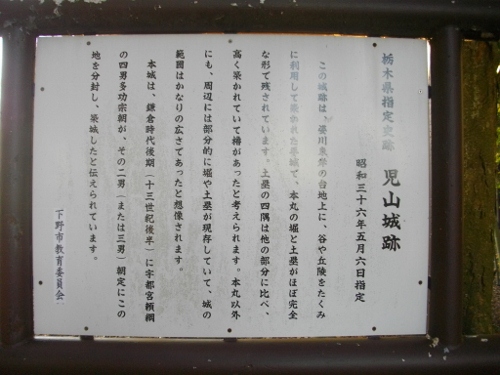 栃木県指定史跡 児山城跡
昭和三十六年五月六日指定
この城跡は、姿川東岸の台地上に、谷や丘陵をたくみ
に利用して築かれた平城で、本丸の堀と土塁がほぼ完全
な形で残されています。土塁の四隅は他の部分に比べ、
高く築かれていて櫓があったと考えられます。本丸以外
にも、周辺には部分的に堀や土塁が現存していて、城の
範囲はかなりの広さであったと想像されます。
本城は、鎌倉時代後期（十三世紀後半）に宇都宮頼綱
の四男多功宗朝が、その二男（または三男）朝定にこの
地を分封し、築城したと伝えられています。
下野市教育委員会